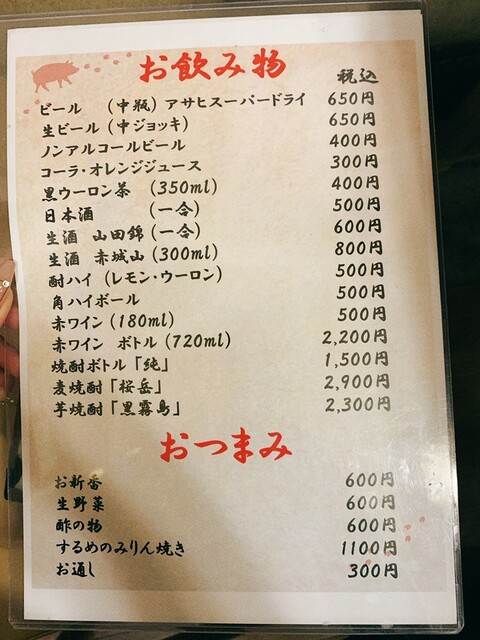 お飲み物
税込
ビール (中瓶) アサヒスーパードライ 650円
生ビール (中ジョッキ) 650円
ノンアルコールビール 400円
コーラ・オレンジジュース 300円
黒ウーロン茶 (350ml) 400円
日本酒 (一合) 500円
生酒 山田錦 (一合) 600円
生酒 赤城山 (300ml) 800円
酎ハイ (レモン・ウーロン) 500円
角ハイボール 500円
赤ワイン (180ml) 500円
赤ワイン ボトル (720ml) 2,200円
焼酎ボトル「純」 1,500円
麦焼酎「桜岳」 2,900円
芋焼酎「黒霧島」 2,300円
おつまみ
お新香 600円
生野菜 600円
酢の物 600円
するめのみりん焼き 1100円
お通し 300円